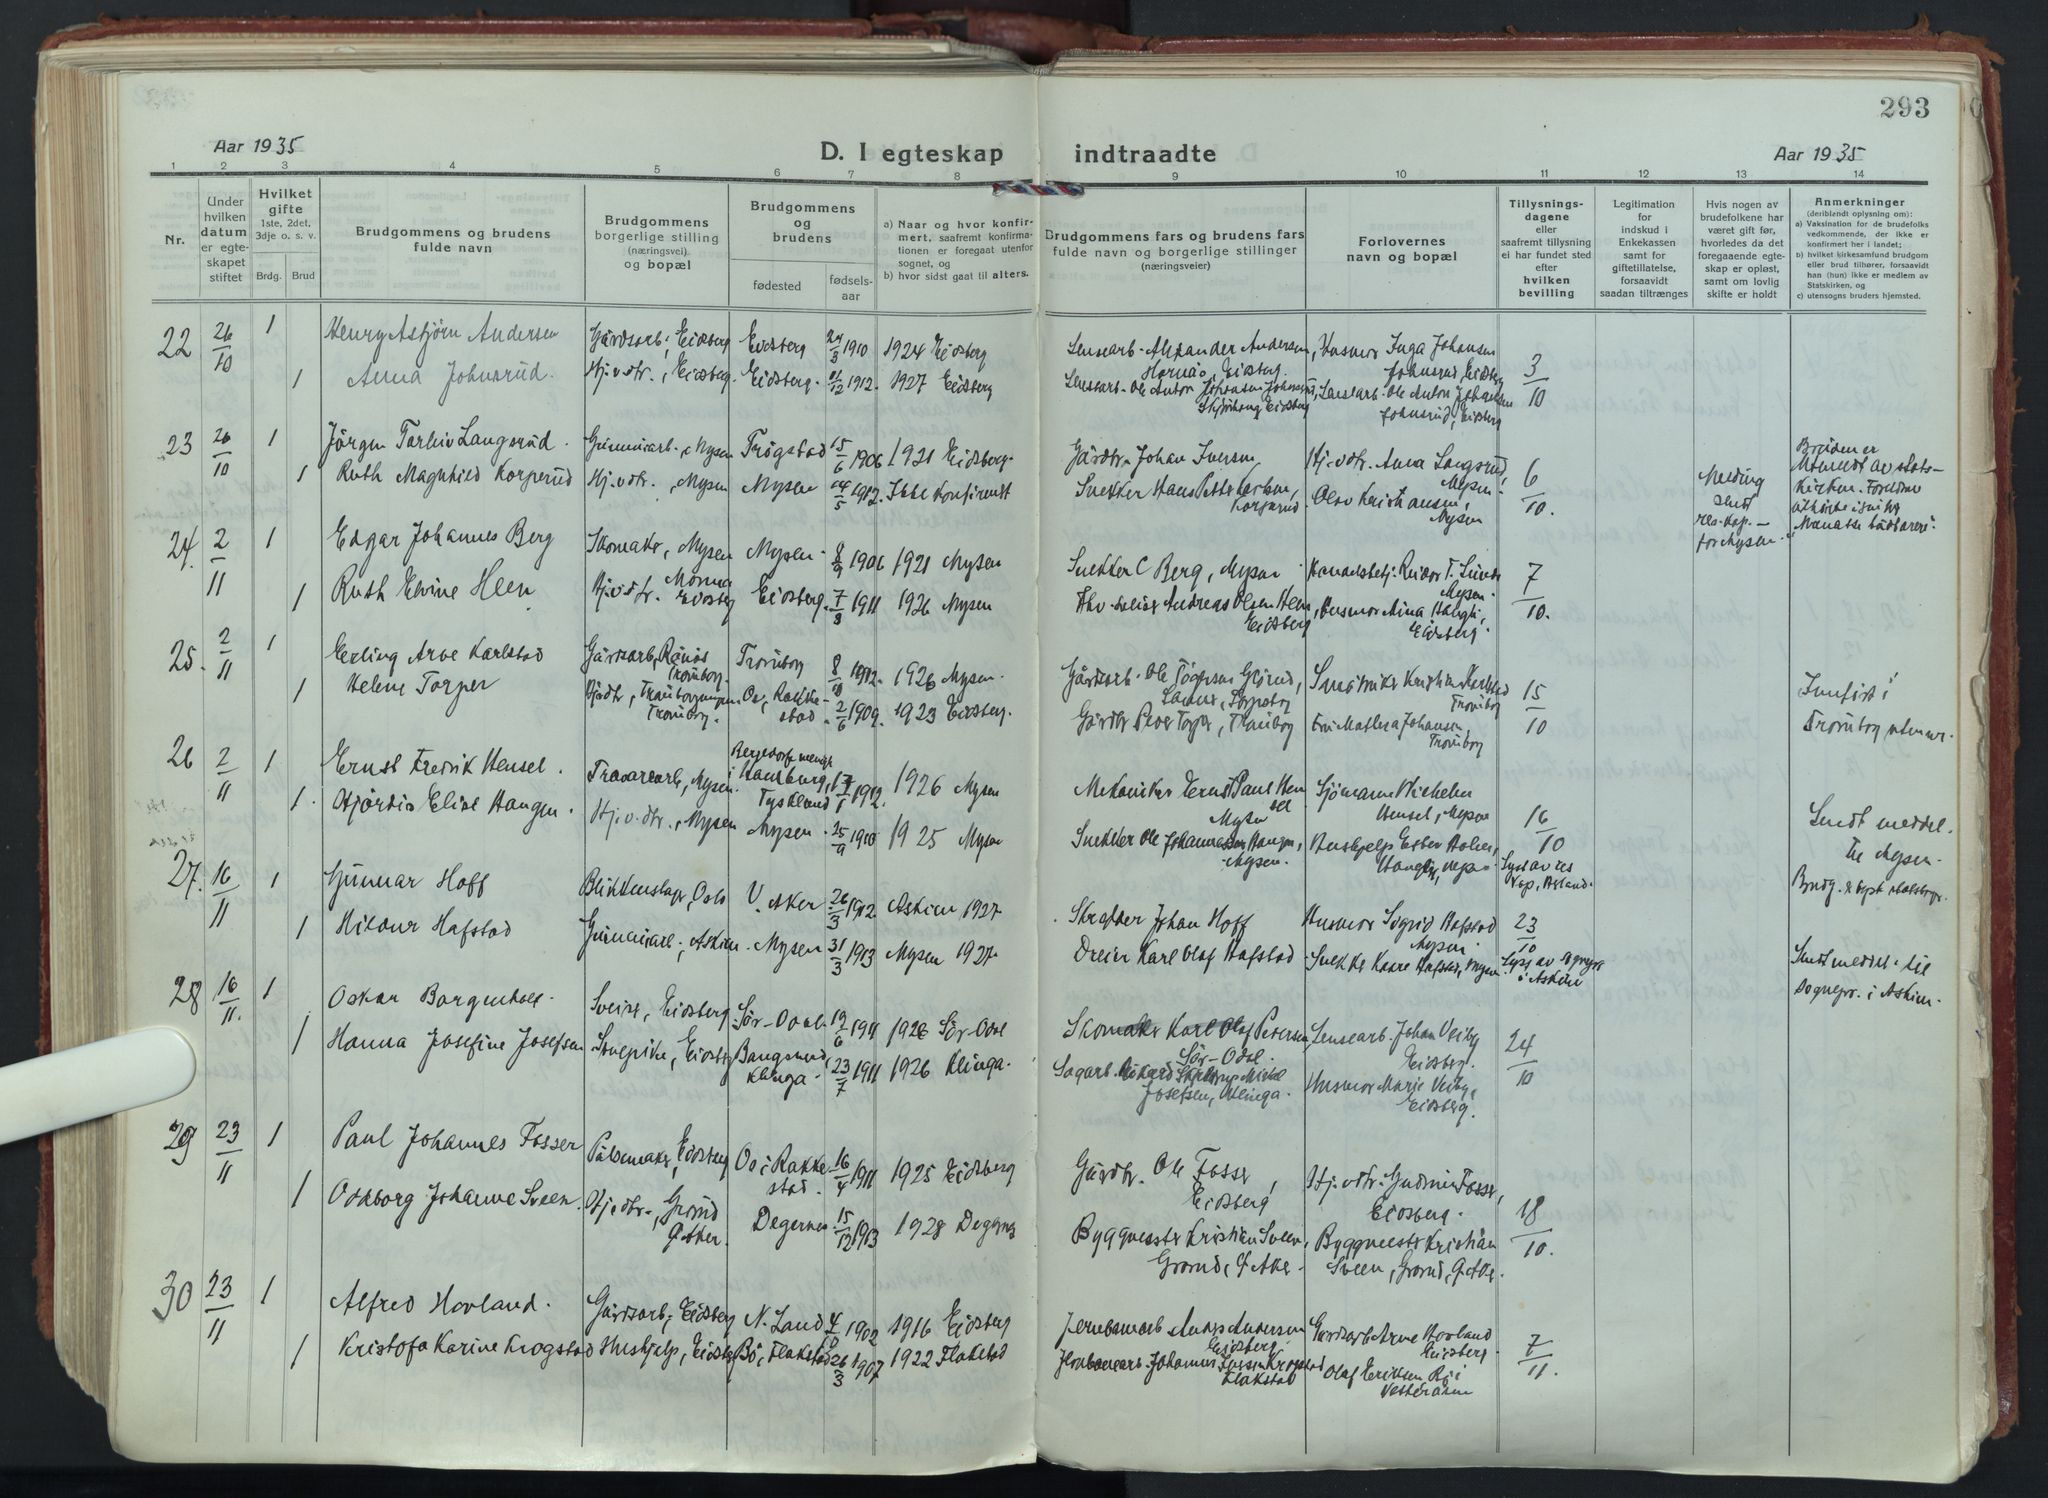 293
Aar 1935
D. I egteskap indtraadte
Aar 1935
1 2 3 4 5 6 7 8 9 10 11 12 13 14
Nr.
Under hvilken datum er egteskapet stiftet
Hvilket gifte
1ste, 2det, 3dje o. s. v.
Brdg. Brud
Brudgommens og brudens fulde navn
Brudgommens borgerlige stilling (næringsvei) og bopæl
Brudgommens og brudens
fødested
fødselsaar
a) Naar og hvor konfirmert, saafremt konfirmationen er foregaat utenfor sognet, og
b) hvor sidst gaat til alters.
Brudgommens fars og brudens fars fulde navn og borgerlige stillinger (næringsveier)
Forlovernes navn og bopæl
Tillysningsdagene eller saafremt tillysning ei har fundet sted efter hvilken bevilling
Legitimation for indskud i Enkekassen samt for giftetillatelse, forsaavidt saadan tiltrænges
Hvis nogen av brudefolkene har været gift før, hvorledes da det foregaaende egteskap er opløst, samt om lovlig skifte er holdt
Anmerkninger
(deriblandt oplysning om):
a) Vaksination for de brudefolks vedkommende, der ikke er konfirmert her i landet;
b) hvilket kirkesamfund brudgom eller brud tilhører, forsaavidt han (hun) ikke er medlem av Statskirken, og
c) utensogns bruders hjemsted.
22 26/10 1 Henry Asbjørn Andersen Gårdsarb., Eidsberg Eidsberg 24/3 1910 1924 Eidsberg
Lensearb. Alexander Andersen, Eidsberg. Husmor Inga Johansen Johnsrud, Eidsberg 3/10
1 Anna Johnsrud. Hj.v.dtr., Eidsberg. Eidsberg. 1912. 1927 Eidsberg
Lensearb. Ole Anton Johansen Johnsrud, Eidsberg Lensearb. Ole Anton Johansen Johnsrud, Eidsberg
23 26/10 1 Jørgen Langsrud. Gummiarb., Mysen Trøgstad 15/6 1906 1921 Eidsberg.
Gårdbr. Johan Iversen Hj.v.dtr. Anna Langsrud, Mysen. 6/10.
1 Ruth Magnhild Korperud Hj.v.dtr., Mysen Mysen 1912. Ikke konfirmert
Snekker Hans Petter Olav Kristiansen, Mysen
Melding sendt for Mysen.
Bruden er utmeldt av statskirken.
24. 2/11 1 Edgar Johannes Berg Skomaker, Mysen Mysen 8/9 1906 1921 Mysen
Snekker C. Berg, Mysen Mysen. 7/10.
1 Ruth Elvine Heen Hj.v.dtr. Eidsberg Eidsberg. 7/8 1911 1926 Mysen
Andreas Olsen Heen, Eidsberg Husmor Mina Eidsberg.
25. 2/11 1 Erling Arve Karlstad Gårdsarb., Trømborg. Trømborg 8/10 1912. 1926 Mysen.
Gårdsarb. Ole Kristian Karlstad Trømborg 15/10
1 Helene Torper Trømborg. Os, Rakkestad. 2/6 1909. 1923 Eidsberg.
Gårdbr. Peder Torper, Trømborg Fru Mathea Johansen, Trømborg
Innført i Trømborg
26 2/11 1 Ernst Fredrik Hensel. Trævarearb., Mysen. Hamburg, Tyskland 1912. 1926 Mysen
Mekaniker Ernst Paul Hensel Mysen Sjømann Wilhelm Hensel, Mysen 16/10
1. Hjørdis Elise Haugen. Hj.v.dtr., Mysen Mysen. 25/9 1910 1925 Mysen
Snekker Ole Johannessen Haugen, Mysen. Hushjelp Ester
Sendt meddel. til Mysen.
27. 16/11 1 Gunnar Hoff Blikkenslager, Oslo V. Aker 26/3 1912 Askim 1927
Skredder Johan Hoff Husmor Sigrid Hafstad Mysen. 23/10
1 Hildur Hafstad Gummiarb., Askim. Mysen 31/3 1913 Mysen 1927.
Dreier Karl Olaf Hafstad Snekker Kaare Hafstad, Mysen Lyst av sognepr. i Askim
Sendt meddel. til sognepr. i Askim.
28 16/11. 1 Oskar Borgenholt. Sveiser, Eidsberg Sør-Odal. 19/6 1911 1926 Sør-Odal
Skomaker Karl Olaf Petersen, Sør-Odal. Lensearb. Johan Veiby Eidsberg. 24/10
1 Hanna Josefine Josefsen Eidsberg Bangsund, Klinga. 23/7 1911 1926 Klinga.
Sagarb. Josefsen, Klinga. Husmor Marie Veiby, Eidsberg.
29 23/11 1 Paul Johannes Fosser Pølsemaker, Eidsberg Os i Rakkestad. 16/4 1911 1925 Eidsberg
Gårdbr. Ole Fosser, Eidsberg Hj.v.dtr. Gudrun Fosser, Eidsberg. 18/10.
1 Oddborg Johanne Sveen. Hj.v.dtr., Grorud Ø. Aker. Degernes. 15/12 1913 1928 Degernes
Byggmester Kristian Sveen, Grorud, Ø. Aker. Byggmester Kristian Sveen, Grorud, Ø. Aker.
30 23/11 1 Alfred Hovland. Gårdsarb., Eidsberg N. Land 1902 1916 Eidsberg
Jernbanearb. Anders Andersen Eidsberg Gårdsarb. Arne Hovland Eidsberg. 7/11.
1 Kristofa Karine Krogstad Hushjelp, Eidsberg Bø i Flakstad 26/3 1907 1922 Flakstad
Jernbanearb. Johannes Krogstad Flakstad Olaf Eriksen